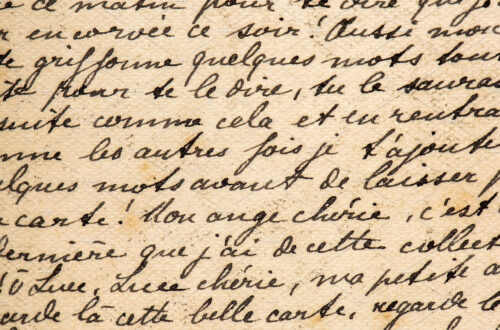 ce matin pour te dire que je
en corvée ce soir! Aussi mon
griffonne quelques mots tout
pour te le dire, tu le sauras
suite comme cela et en rentra
mme les autres fois je t'ajoute
elques mots avant de laisser p
carte! Mon ange chérie, c'est
dernière que j'ai de cette collect
Ô Luce, Luce chérie, ma petite a
garde là cette belle carte, regarde l